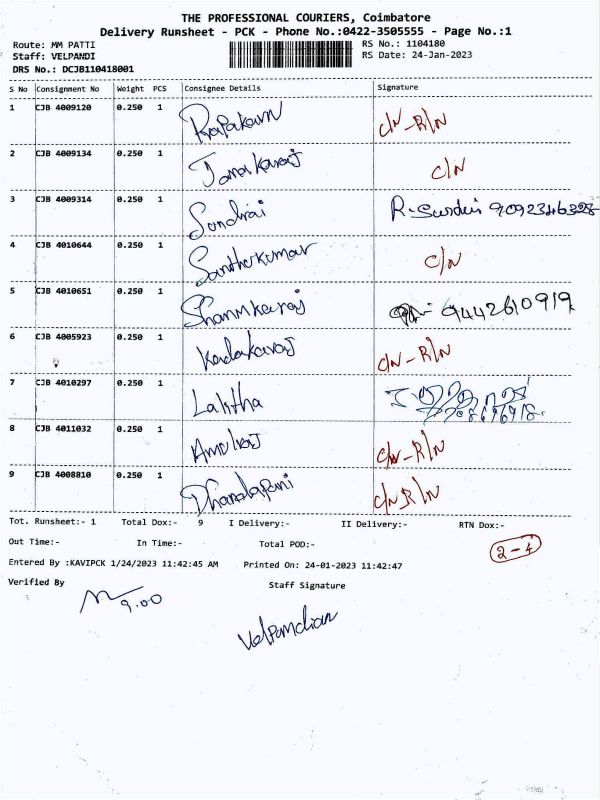 THE PROFESSIONAL COURIERS, Coimbatore
Delivery Runsheet - PCK - Phone No.:0422-3505555 - Page No.:1
Route: MM PATTI RS No.: 1104180
Staff: VELPANDI RS Date: 24-Jan-2023
DRS No.: DCJB110418001
S No Consignment No Weight PCS Consignee Details Signature
1 CJB 4009120 0.250 1 C/N-R/N
2 CJB 4009134 0.250 1 C/N
3 CJB 4009314 0.250 1 9092346328
4 CJB 4010644 0.250 1 Santhokumar C/N
5 CJB 4010651 0.250 1 9442610919
6 CJB 4005923 0.250 1 C/N-R/N
7 CJB 4010297 0.250 1 Lalitha
8 CJB 4011032 0.250 1 Amalraj C/N-R/N
9 CJB 4008810 0.250 1 Dhandapani C/N R/N
Tot. Runsheet:- 1 Total Dox:- 9 I Delivery:- II Delivery:- RTN Dox:-
Out Time:- In Time:- Total POD:- 2-4
Entered By :KAVIPCK 1/24/2023 11:42:45 AM Printed On: 24-01-2023 11:42:47
Verified By Staff Signature
9.00
Velpandian